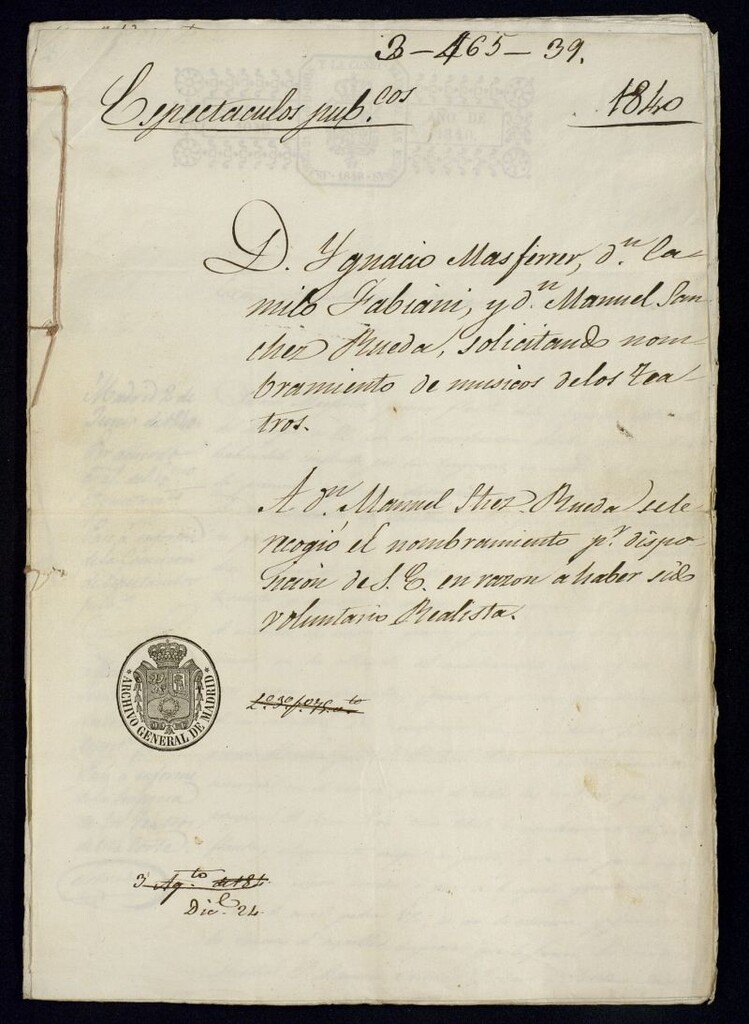 3-465-39.
Espectaculos pub.cos 1840
D. Ygnacio Masferrer, d.n Ca-
milo Fabiani, y d.n Manuel San
chez Rueda, solicitando nom-
bramiento de musicos de los tea-
tros.
A d.n Manuel Shez. Rueda se le
recogió el nombramiento p.r dispo-
sición de S. E. en razon a haber sido
voluntario Realista.
ARCHIVO GENERAL DE MADRID
3 Ag.to de 184
Dic.e 24.